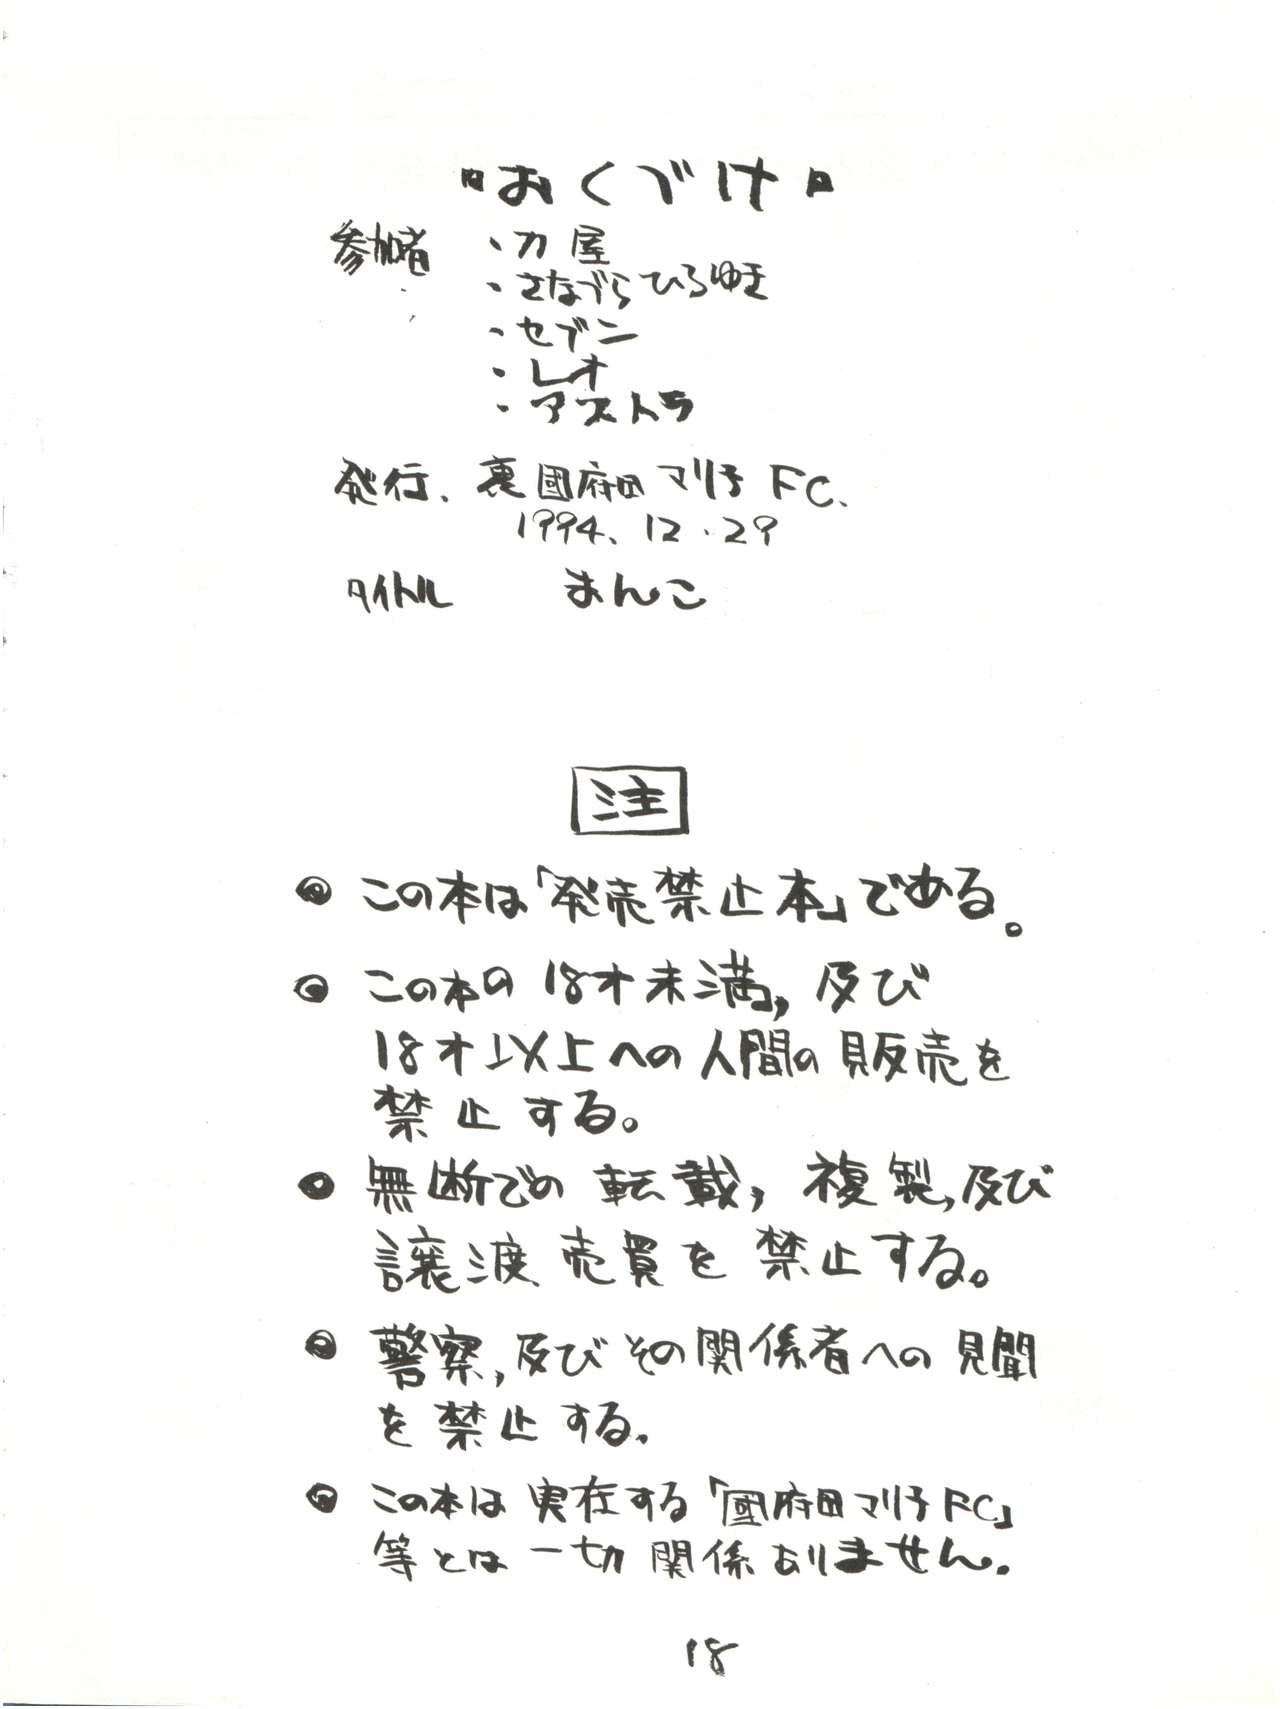 "おくづけ"
参加者 ・力屋
・さながらひろゆき
・セブン
・レオ
・アストラ
発行、裏國府田マリ子FC、
1994、12・29
タイトル まんこ
注
◎ この本は「発売禁止本」である。
◎ この本の18才未満,及び
18才以上への人間の販売を
禁止する。
◎ 無断での転載,複製,及び
譲渡、売買を禁止する。
◎ 警察,及びその関係者への見聞
を禁止する。
◎ この本は実在する「國府田マリ子FC」
等とは一切関係ありません。
18